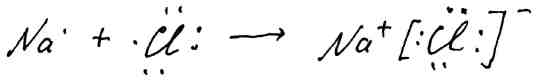 Na· + ·C̤̈l: ⟶ Na⁺ [:C̤̈l:]⁻